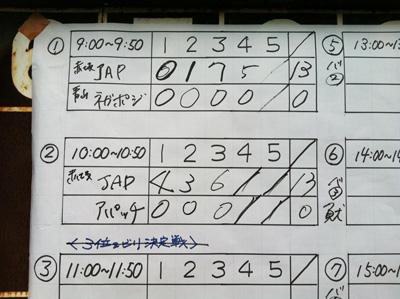 ① 9:00~9:50 1 2 3 4 5 ⑤ 13:00~
JAP 0 1 7 5 13 バ
ネガポジ 0 0 0 0 0 ②
② 10:00~10:50 1 2 3 4 5 ⑥ 14:00~14
JAP 4 3 6 13 バ
アパッチ 0 0 0 0
3位 決定戦
③ 11:00~11:50 1 2 3 4 5 ⑦ 15:00~1